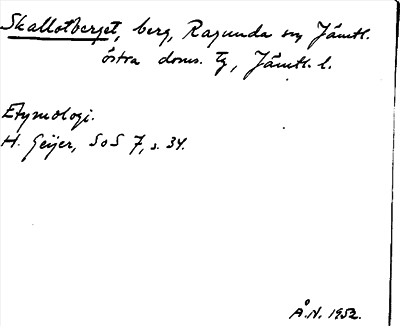 Skallotberget, berg, Ragunda sn, Jämtl.
östra doms. tg, Jämtl. l.
Etymologi.
H. Geijer, SoS 7, s. 34.
Å.N. 1952.